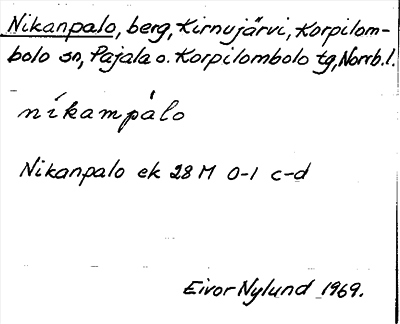 Nikanpalo, berg, Kirnujärvi, Korpilom-
bolo sn, Pajala o. Korpilombolo tg, Norrb. l.
níkampàlo
Nikanpalo ek 28 M 0-1 c-d
Eivor Nylund 1969.